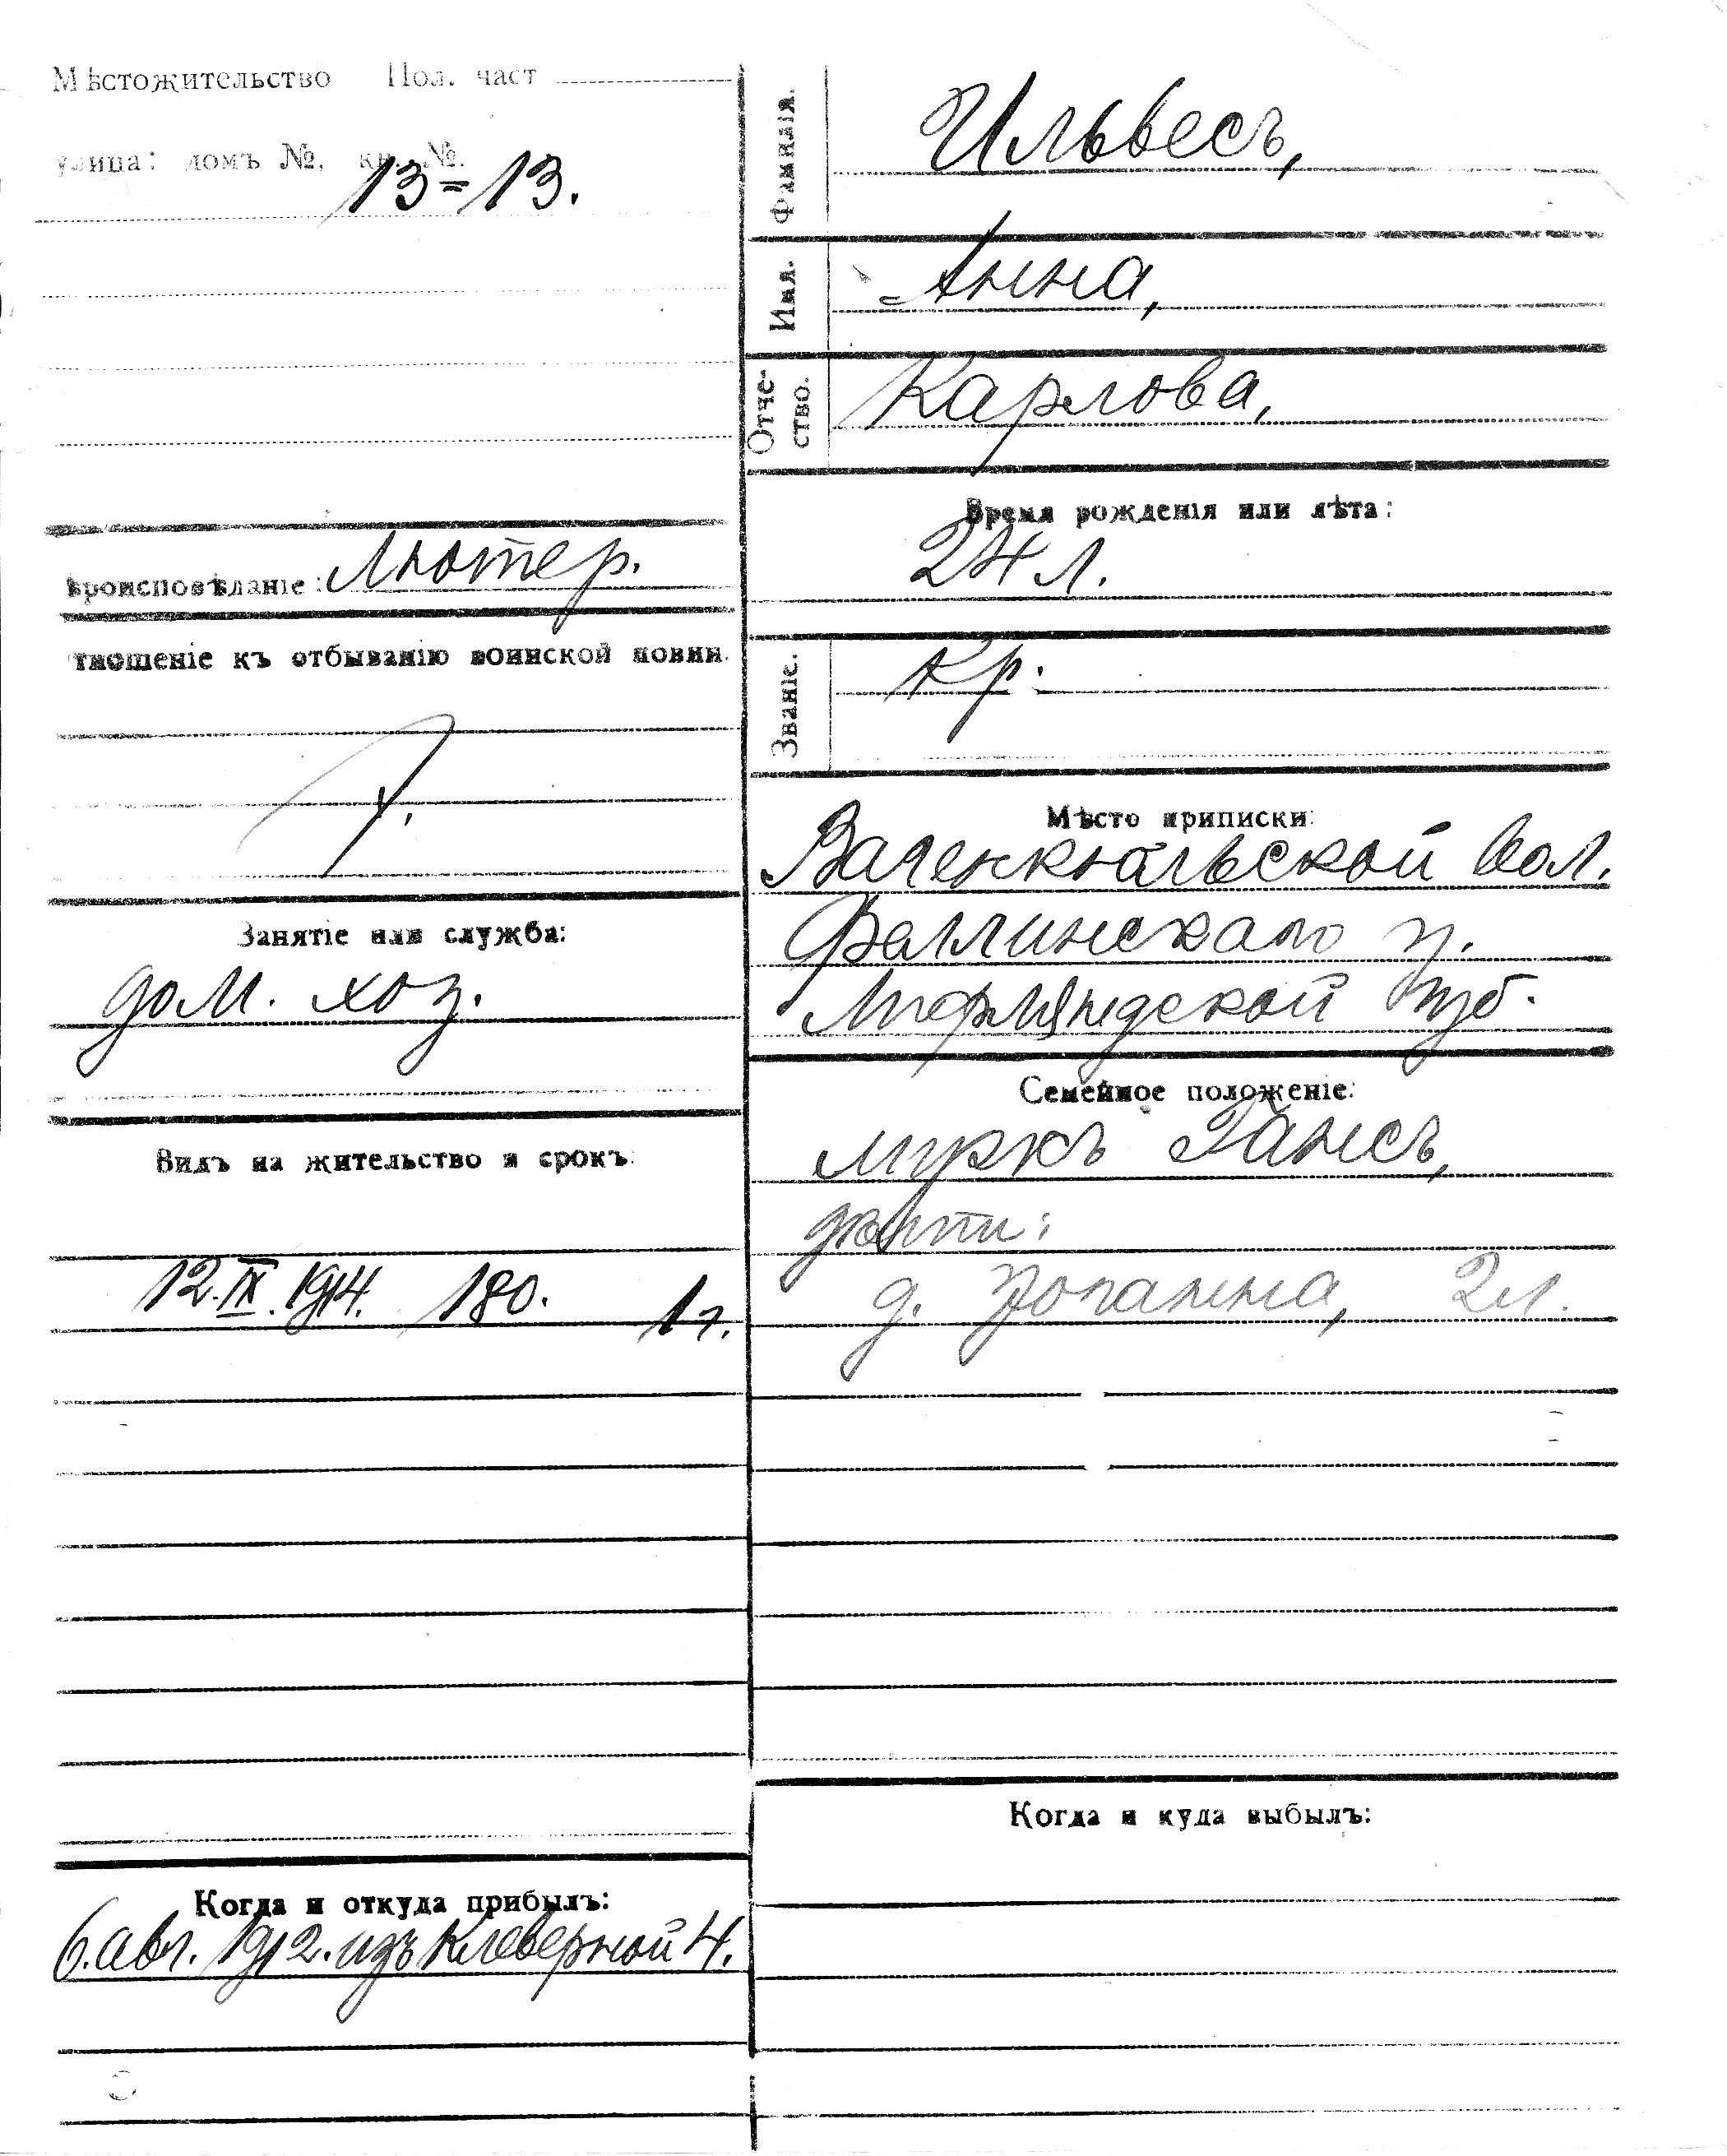 Мѣстожительство Пол. част
улица: домъ №. кв. №.
13=13.
Вѣроисповѣданіе: Лютер.
тношеніе къ отбыванію воинской повин.
Занятіе или служба:
дом. хоз.
Видъ на жительство и срокъ:
12.IX.1914. 180. 1 г.
Когда и откуда прибылъ:
6. авг. 1912. изъ Клеверной 4.
Фамилія. Ильвесъ,
Имя. Анна,
Отче-
ство. Карлова,
Время рожденія или лѣта:
24 л.
Званіе. Кр.
Мѣсто приписки:
вол.
Феллинскаго у.
Лифляндской губ.
Семейное положеніе:
мужъ Гансъ,
дѣти:
д. Іоганна, 2 л.
Когда и куда выбылъ: